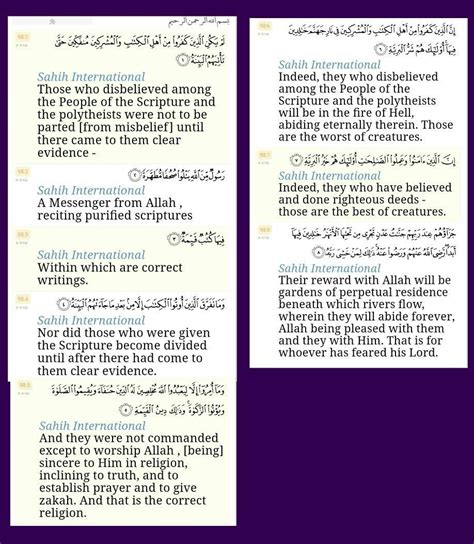 بسم الله الرحمن الرحيم
98:1
لَمْ يَكُنِ الَّذِينَ كَفَرُوا مِنْ أَهْلِ الْكِتَابِ وَالْمُشْرِكِينَ مُنفَكِّينَ حَتَّىٰ
تَأْتِيَهُمُ الْبَيِّنَةُ ﴿١﴾
Sahih International
Those who disbelieved among
the People of the Scripture and
the polytheists were not to be
parted [from misbelief] until
there came to them clear
evidence -
98:2
رَسُولٌ مِّنَ اللَّهِ يَتْلُو صُحُفًا مُّطَهَّرَةً ﴿٢﴾
Sahih International
A Messenger from Allah ,
reciting purified scriptures
98:3
فِيهَا كُتُبٌ قَيِّمَةٌ ﴿٣﴾
Sahih International
Within which are correct
writings.
98:4
وَمَا تَفَرَّقَ الَّذِينَ أُوتُوا الْكِتَابَ إِلَّا مِن بَعْدِ مَا جَاءَتْهُمُ الْبَيِّنَةُ ﴿٤﴾
Sahih International
Nor did those who were given
the Scripture become divided
until after there had come to
them clear evidence.
98:5
وَمَا أُمِرُوا إِلَّا لِيَعْبُدُوا اللَّهَ مُخْلِصِينَ لَهُ الدِّينَ حُنَفَاءَ وَيُقِيمُوا الصَّلَاةَ
وَيُؤْتُوا الزَّكَاةَ ۚ وَذَٰلِكَ دِينُ الْقَيِّمَةِ ﴿٥﴾
Sahih International
And they were not commanded
except to worship Allah , [being]
sincere to Him in religion,
inclining to truth, and to
establish prayer and to give
zakah. And that is the correct
religion.
98:6
إِنَّ الَّذِينَ كَفَرُوا مِنْ أَهْلِ الْكِتَابِ وَالْمُشْرِكِينَ فِي نَارِ جَهَنَّمَ خَالِدِينَ
فِيهَا ۚ أُولَٰئِكَ هُمْ شَرُّ الْبَرِيَّةِ ﴿٦﴾
Sahih International
Indeed, they who disbelieved
among the People of the
Scripture and the polytheists
will be in the fire of Hell,
abiding eternally therein. Those
are the worst of creatures.
98:7
إِنَّ الَّذِينَ آمَنُوا وَعَمِلُوا الصَّالِحَاتِ أُولَٰئِكَ هُمْ خَيْرُ الْبَرِيَّةِ ﴿٧﴾
Sahih International
Indeed, they who have believed
and done righteous deeds -
those are the best of creatures.
98:8
جَزَاؤُهُمْ عِندَ رَبِّهِمْ جَنَّاتُ عَدْنٍ تَجْرِي مِن تَحْتِهَا الْأَنْهَارُ خَالِدِينَ فِيهَا
أَبَدًا ۖ رَّضِيَ اللَّهُ عَنْهُمْ وَرَضُوا عَنْهُ ۚ ذَٰلِكَ لِمَنْ خَشِيَ رَبَّهُ ﴿٨﴾
Sahih International
Their reward with Allah will be
gardens of perpetual residence
beneath which rivers flow,
wherein they will abide forever,
Allah being pleased with them
and they with Him. That is for
whoever has feared his Lord.